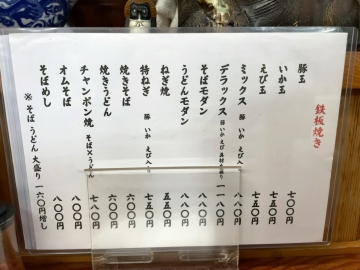 鉄板焼き
豚玉 七〇〇円
いか玉 七五〇円
えび玉 七五〇円
ミックス 豚 いか えび入り 八八〇円
デラックス 豚 いか えび 一一八〇円
そばモダン 八八〇円
うどんモダン 八八〇円
ねぎ焼 五五〇円
特ねぎ 豚 いか えび入り 七五〇円
焼きそば 六〇〇円
焼きうどん 六〇〇円
チャンポン焼 そば×うどん 七八〇円
オムそば 八〇〇円
そばめし 八〇〇円
※そば、うどん 大盛り 一六〇円増し